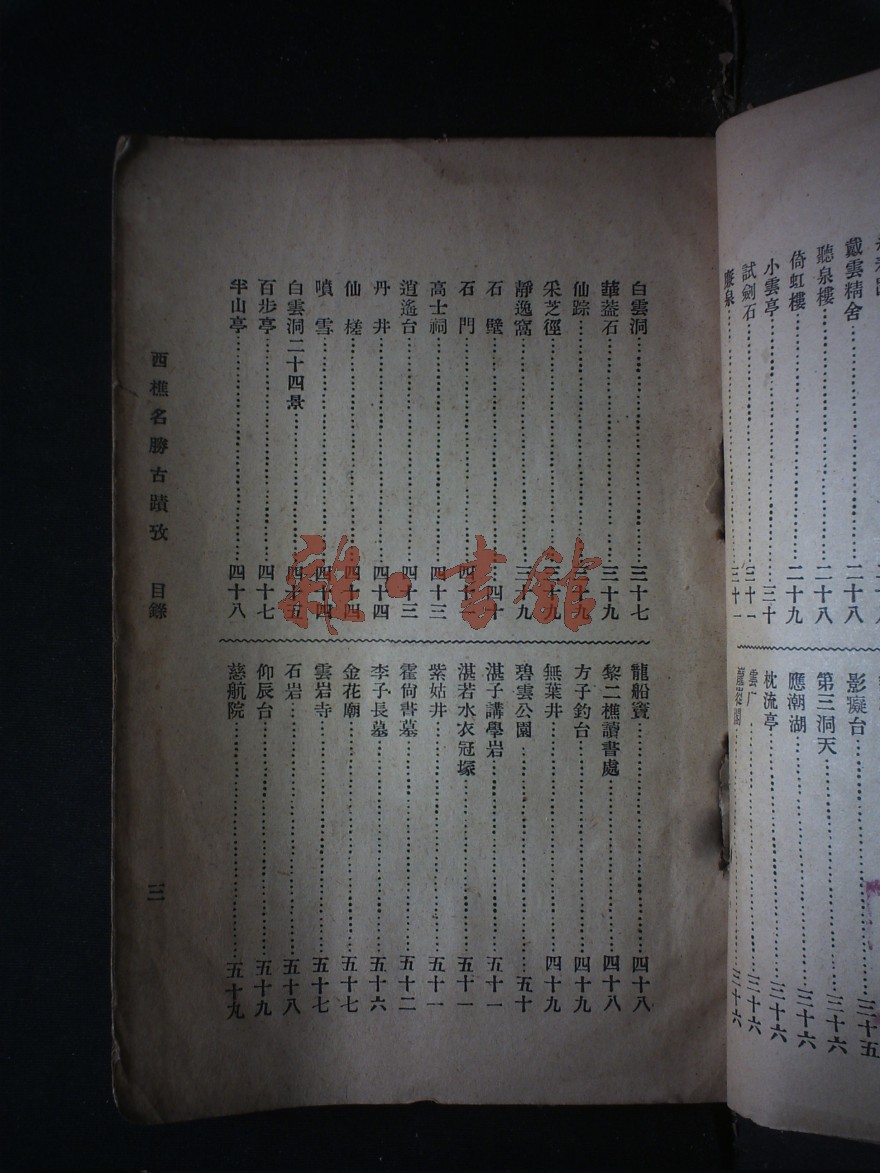 戴雲精舍……二十八
聽泉樓……二十八
倚虹樓……二十九
小雲亭……三十
試劍石……三十一
廉泉……三十一
影癡台……三十五
第三洞天……三十六
應潮湖……三十六
枕流亭……三十六
雲广……三十六
龍巖閣……三十六
白雲洞……三十七
華蓋石……三十九
仙踪……三十九
采芝徑……三十九
靜逸窩……三十九
石壁……四十
石門……四十二
高士祠……四十三
逍遙台……四十三
丹井……四十四
仙槎……四十四
噴雪……四十四
白雲洞二十四景……四十五
百步亭……四十七
半山亭……四十八
龍船寶……四十八
黎二樵讀書處……四十八
方子釣台……四十九
無葉井……四十九
碧雲公園……五十
湛子講學岩……五十一
湛若水衣冠塚……五十一
紫姑井……五十一
霍尙書墓……五十二
李子長墓……五十六
金花廟……五十七
雲岩寺……五十七
石岩……五十八
仰辰台……五十九
慈航院……五十九
西樵名勝古蹟攷 目錄
三
雜·書館